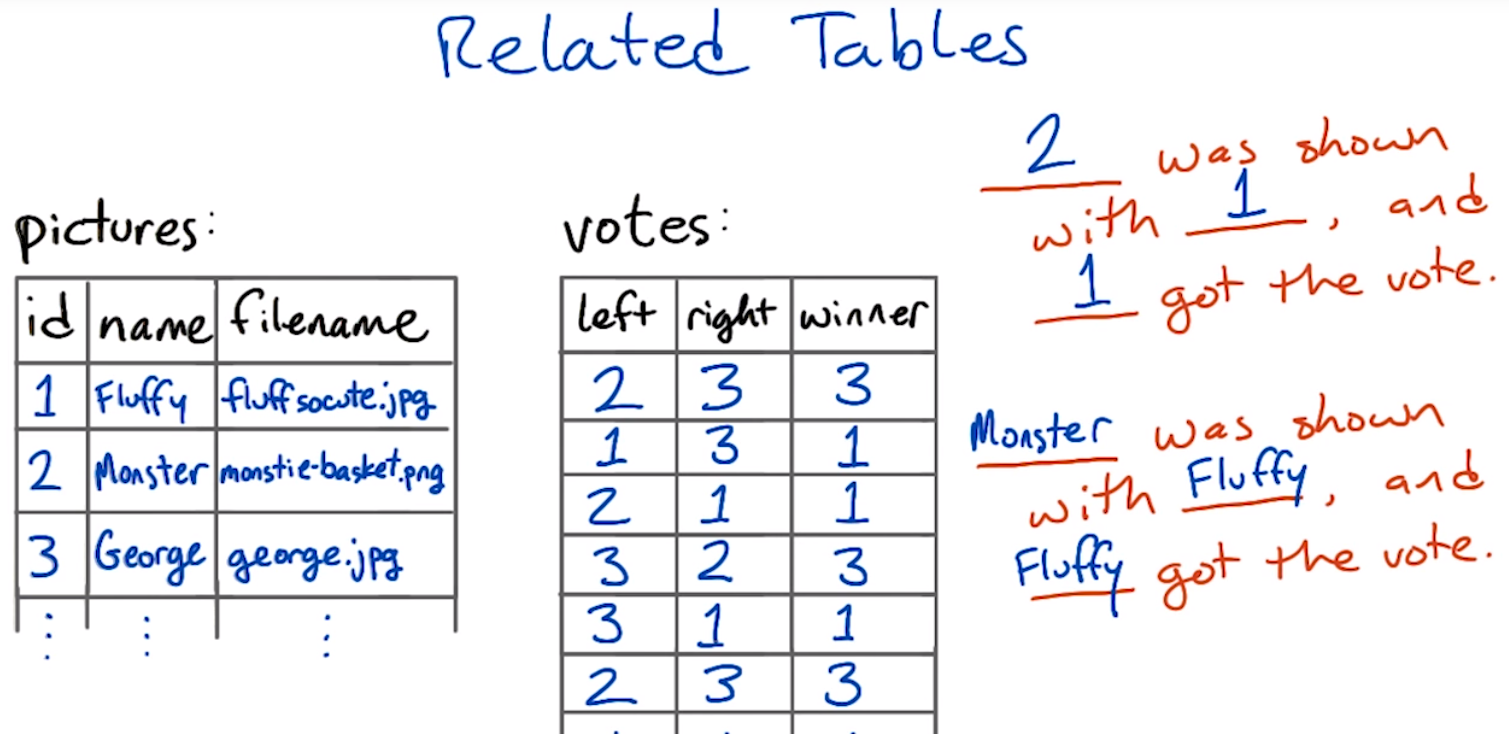 Related Tables
pictures:
id name filename
1 Fluffy fluffsocute.jpg
2 Monster monstie-basket.png
3 George george.jpg
votes:
left right winner
2 3 3
1 3 1
2 1 1
3 2 3
3 1 1
2 3 3
2 was shown
with 1, and
1 got the vote.
Monster was shown
with Fluffy, and
Fluffy got the vote.